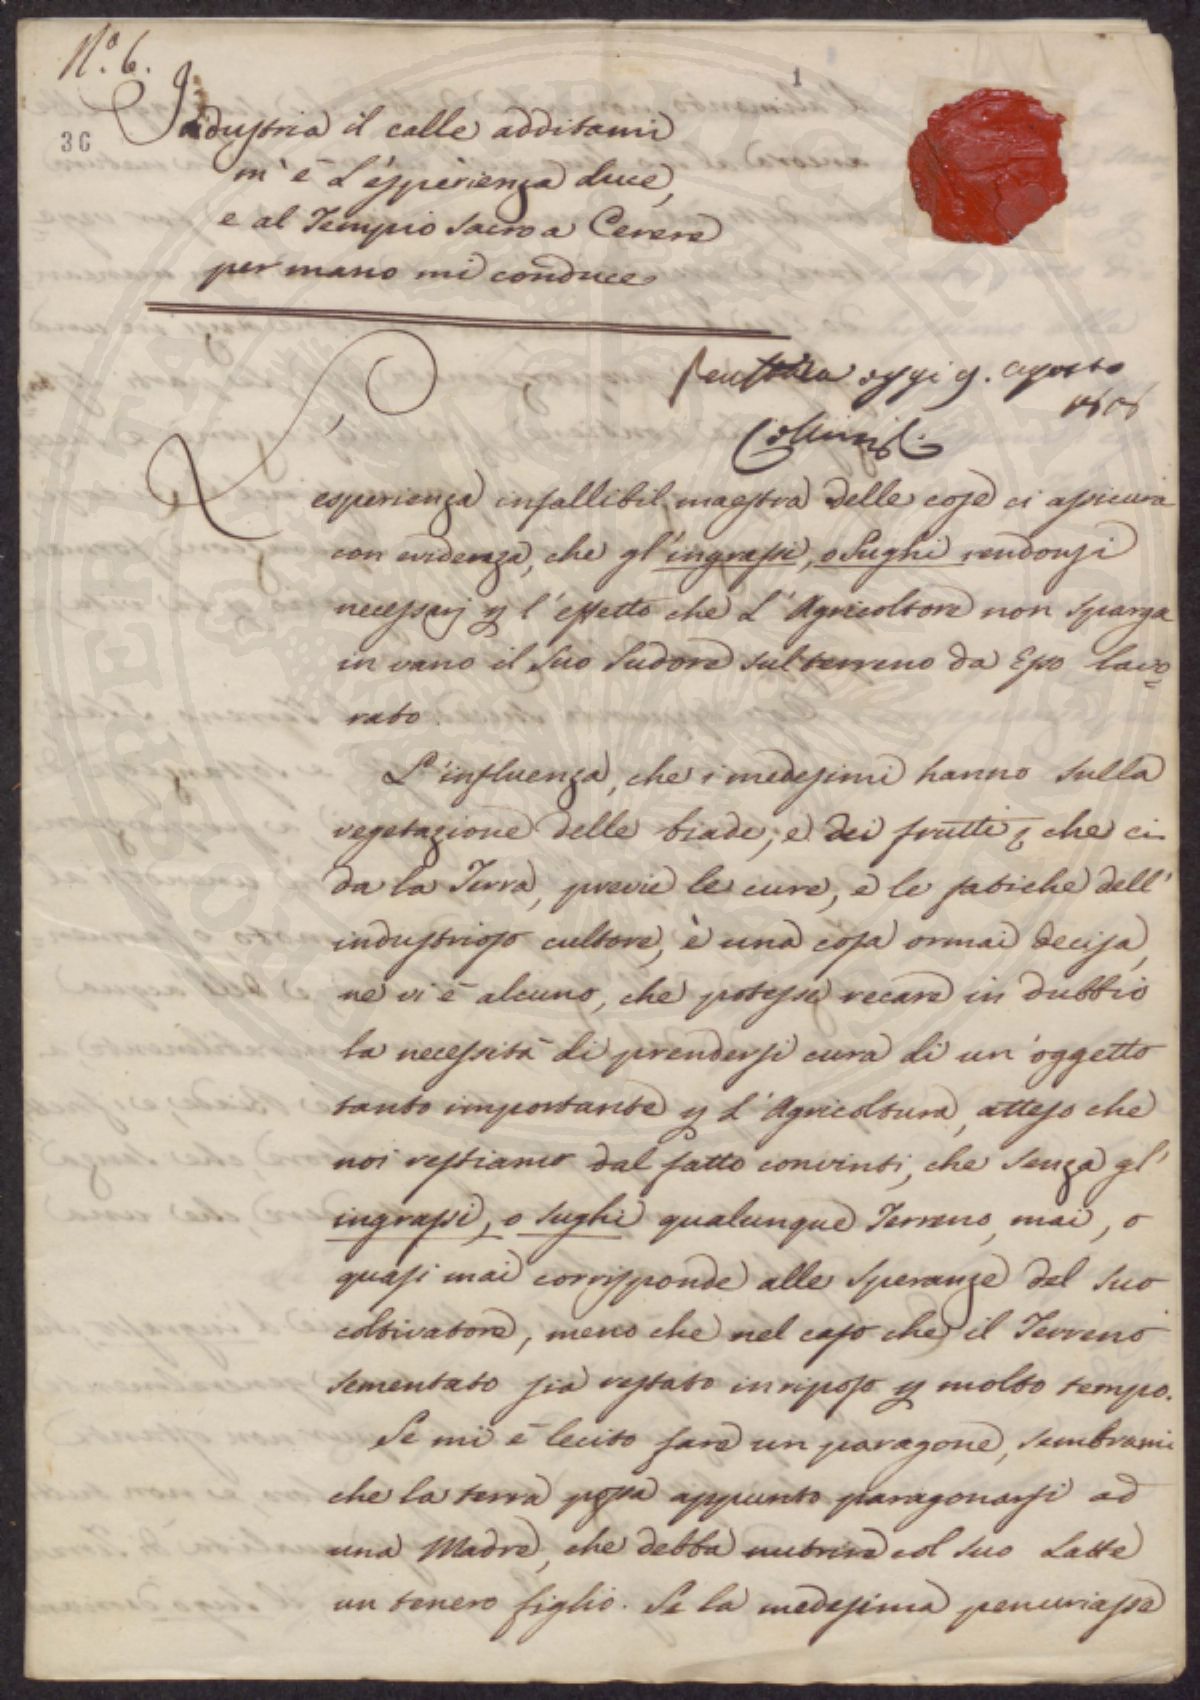 N.º 6.
1
36
Industria il calle additami
m'è L'esperienza duce,
e al Tempio sacro a Cerere
per mano mi conduce
oggi 9. Agosto
L'
esperienza infallibil maestra delle cose ci assicura
con evidenza, che gl'ingrassi, o Sughi rendonsi
necessarj p l'effetto che L'Agricoltore non sparga
in vano il suo sudore sul terreno da Esso lavo=
rato.
L'influenza, che i medesimi hanno sulla
vegetazione delle biade, e dei frutti, che ci
da la Terra, previe le cure, e le fatiche dell'
industrioso cultore, è una cosa ormai decisa,
ne vi è alcuno, che potesse recare in dubbio
la necessità di prendersi cura di un'oggetto
tanto importante p L'Agricoltura, atteso che
noi restiamo dal fatto convinti, che senza gl'
ingrassi, o sughi qualunque Terreno, mai, o
quasi mai corrisponde alle speranze del suo
coltivatore, meno che nel caso che il Terreno
sementato sia restato in riposo p molto tempo.
Se mi è lecito fare un paragone, sembrami
che la terra possa appunto paragonarsi ad
una Madre, che debba nutrire col suo Latte
un tenero figlio. Se la medesima penuriasse